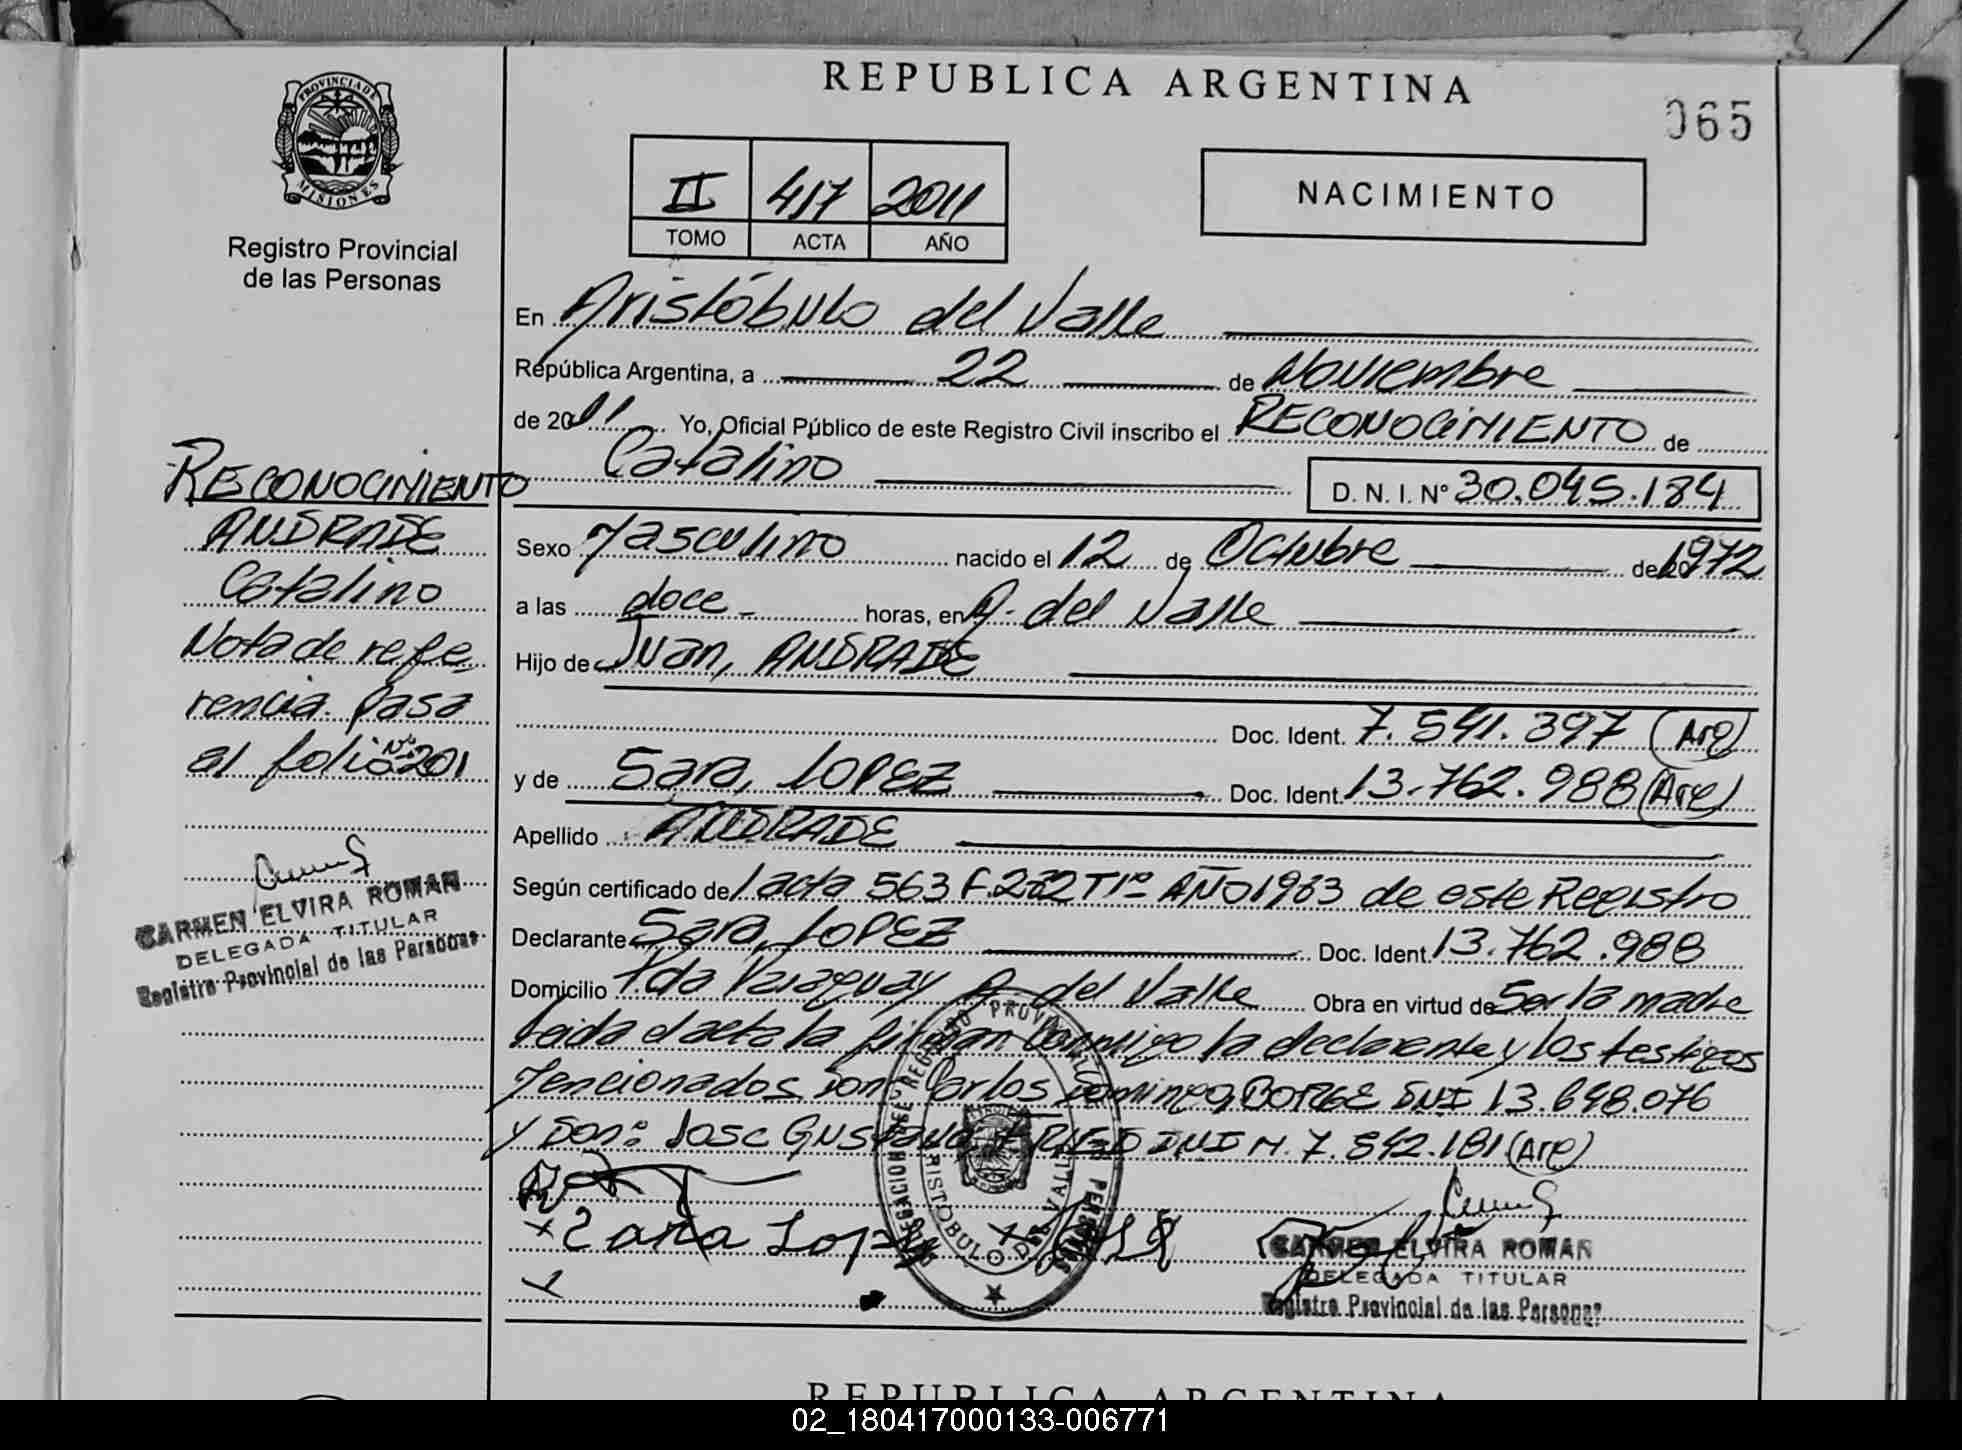 REPUBLICA ARGENTINA
065
PROVINCIA DE
MISIONES
Registro Provincial
de las Personas
II 417 2011
TOMO ACTA AÑO
NACIMIENTO
En Aristóbulo del Valle
República Argentina, a 22 de Noviembre
de 2011 Yo, Oficial Público de este Registro Civil inscribo el RECONOCIMIENTO de
Catalino
D. N. I. Nº 30.045.184
Sexo Masculino nacido el 12 de Octubre de 1972
a las doce horas, en A. del Valle
Hijo de Juan, ANDRADE
Doc. Ident. 7.541.397 (Arg)
y de Sara, LOPEZ Doc. Ident. 13.762.988 (Arg)
Apellido ANDRADE
Según certificado de acta 563 F. T1º AÑO 1983 de este Registro
Declarante Sara, LOPEZ Doc. Ident. 13.762.988
Domicilio Pda Paraguay A. del Valle Obra en virtud de Ser la madre
Leida el acta la firman conmigo la declarante y los testigos
Mencionados son: Carlos Domingo, BORGE DNI 13.698.076
y Don: Jose Gustavo DNI M. 7.842.181 (Arg)
Sara Lopez
CARMEN ELVIRA ROMAN
DELEGADA TITULAR
Registro Provincial de las Personas
RECONOCIMIENTO
ANDRADE
Catalino
Nota de refe
rencia. Pasa
al folio Nº 201
CARMEN ELVIRA ROMAN
DELEGADA TITULAR
Registro Provincial de las Personas
REPUBLICA ARGENTINA
02_180417000133-006771